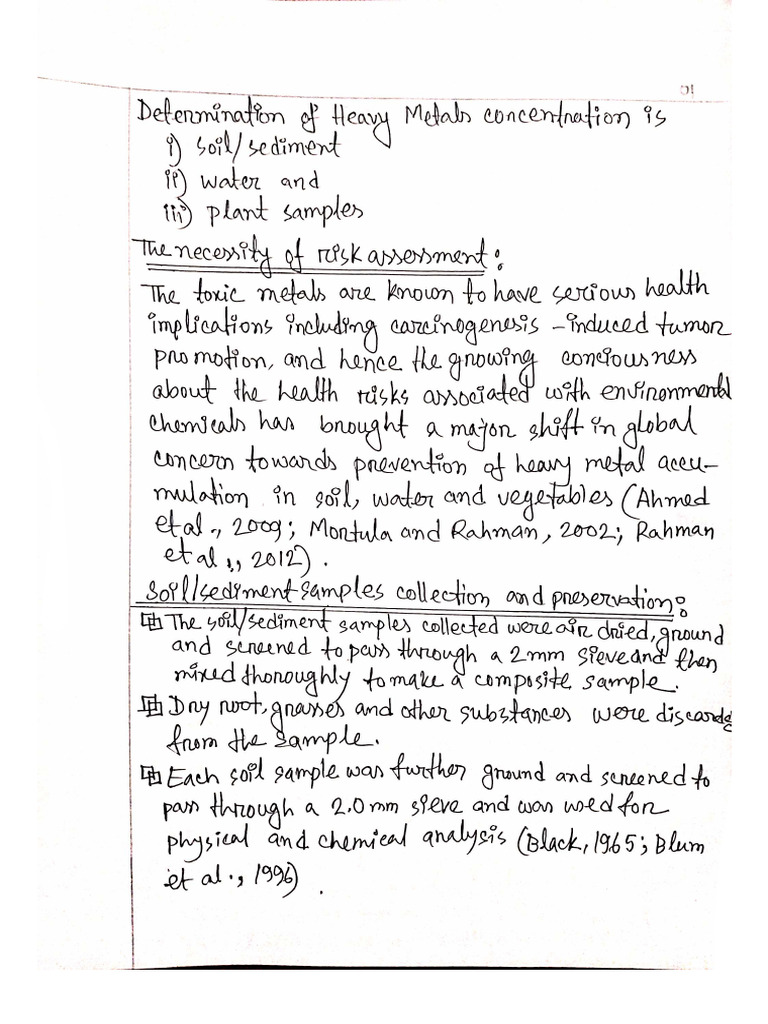 01
Determination of Heavy Metals concentration is
i) soil/sediment
ii) water and
iii) plant samples
The necessity of risk assessment:
The toxic metals are known to have serious health
implications including carcinogenesis -induced tumor
promotion, and hence the growing conciousness
about the health risks associated with environmental
chemicals has brought a major shift in global
concern towards prevention of heavy metal accu-
mulation in soil, water and vegetables (Ahmed
et al., 2009; Mortula and Rahman, 2002; Rahman
et al., 2012).
Soil/sediment samples collection and preservation:
The soil/sediment samples collected were air dried, ground
and screened to pass through a 2mm sieve and then
mixed thoroughly to make a composite sample.
Dry root, grasses and other substances were discarded
from the sample.
Each soil sample was further ground and screened to
pass through a 2.0 mm sieve and was used for
physical and chemical analysis (Black, 1965; Blum
et al., 1996).